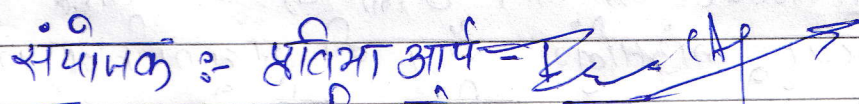 संयोजक :- प्रतिभा आर्य